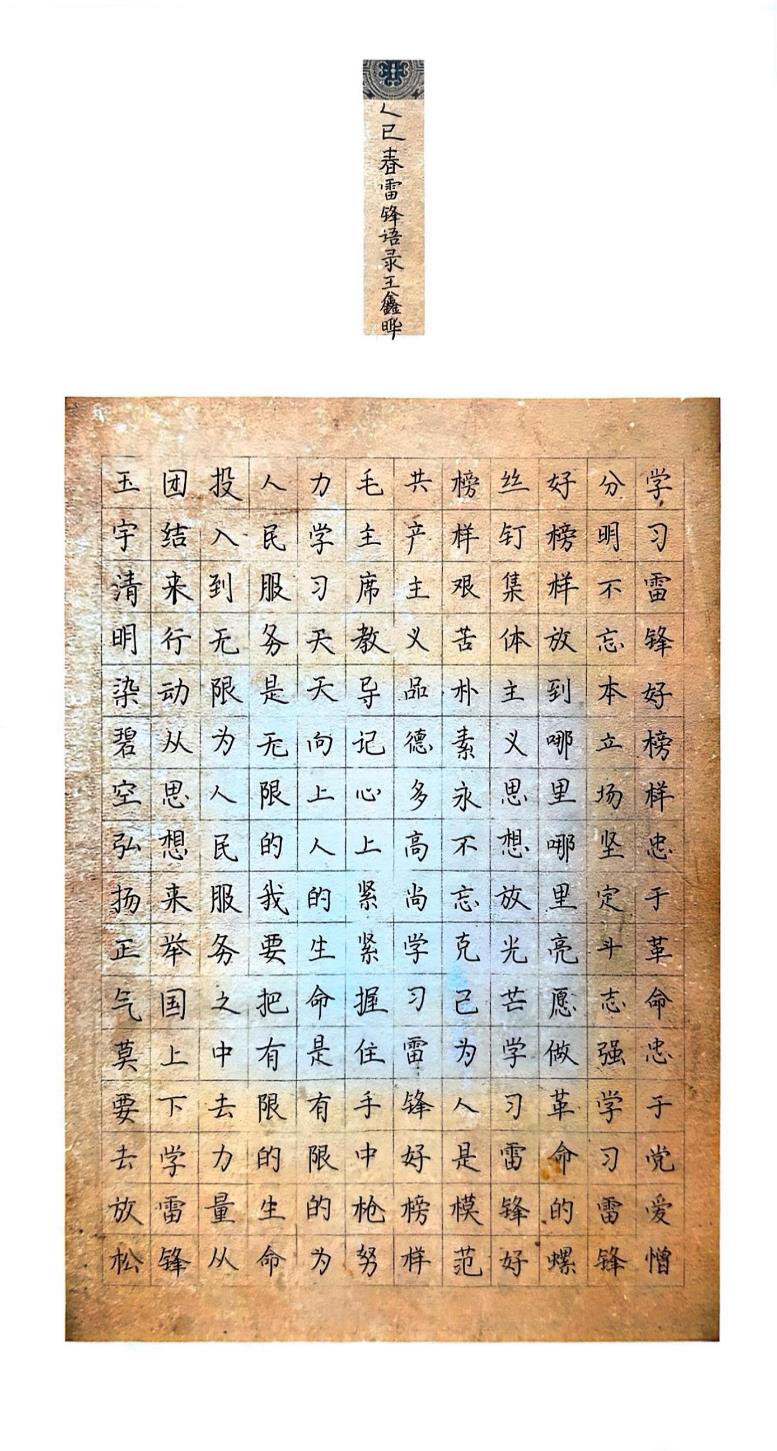 巳春雷锋语录王鑫晔
学习雷锋好榜样忠于革命忠于党爱憎
分明不忘本立场坚定斗志强学习雷锋
好榜样放到哪里哪里亮愿做革命的螺
丝钉集体主义思想放光芒学习雷锋好
榜样艰苦朴素永不忘克己为人是模范
共产主义品德多高尚学习雷锋好榜样
毛主席教导记心上紧紧握住手中枪努
力学习天天向上人的生命是有限的为
人民服务是无限的我要把有限的生命
投入到无限为人民服务之中去力量从
团结来行动从思想来举国上下学雷锋
玉宇清明染碧空弘扬正气莫要去放松